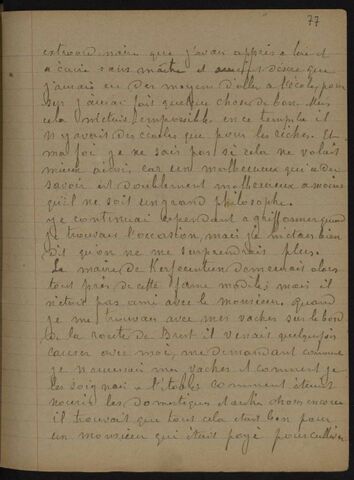 77
extraordinaire que j'avais appris a lire et
a écrire sans maître et disait que
j'aurais eu des moyens d'aller a l'école, pour
sur j'aurai fait quelque chose de bon. Mais
cela m'était impossible en ce temps il
n'y avait des écoles que pour les riches. Et
ma foi je ne sais pas si cela ne valait
mieux ainsi, car un malheureux qui a du
savoir est doublement malheureux a moins
qu'il ne soit un grand philosophe.
Je continuai cependant a griffonner quand
je trouvais l'occasion, mais je m'étais bien
dit qu'on ne me surprendrait plus.
Le maire de Kerfeunteun demeurait alors
tout près de cette ferme modèle; mais il
n'était pas ami avec le monsieur. Quand
je me trouvais avec mes vaches sur le bord
de la route de Brest il venait quelquefois
causer avec moi, me demandant comme
je nourrissais mes vaches et comment je
les soignai a l'étable comment étaient
nourris les domestiques et autres choses encore
il trouvait que tout cela était bon pour
un monsieur qui était payé pour cultiver